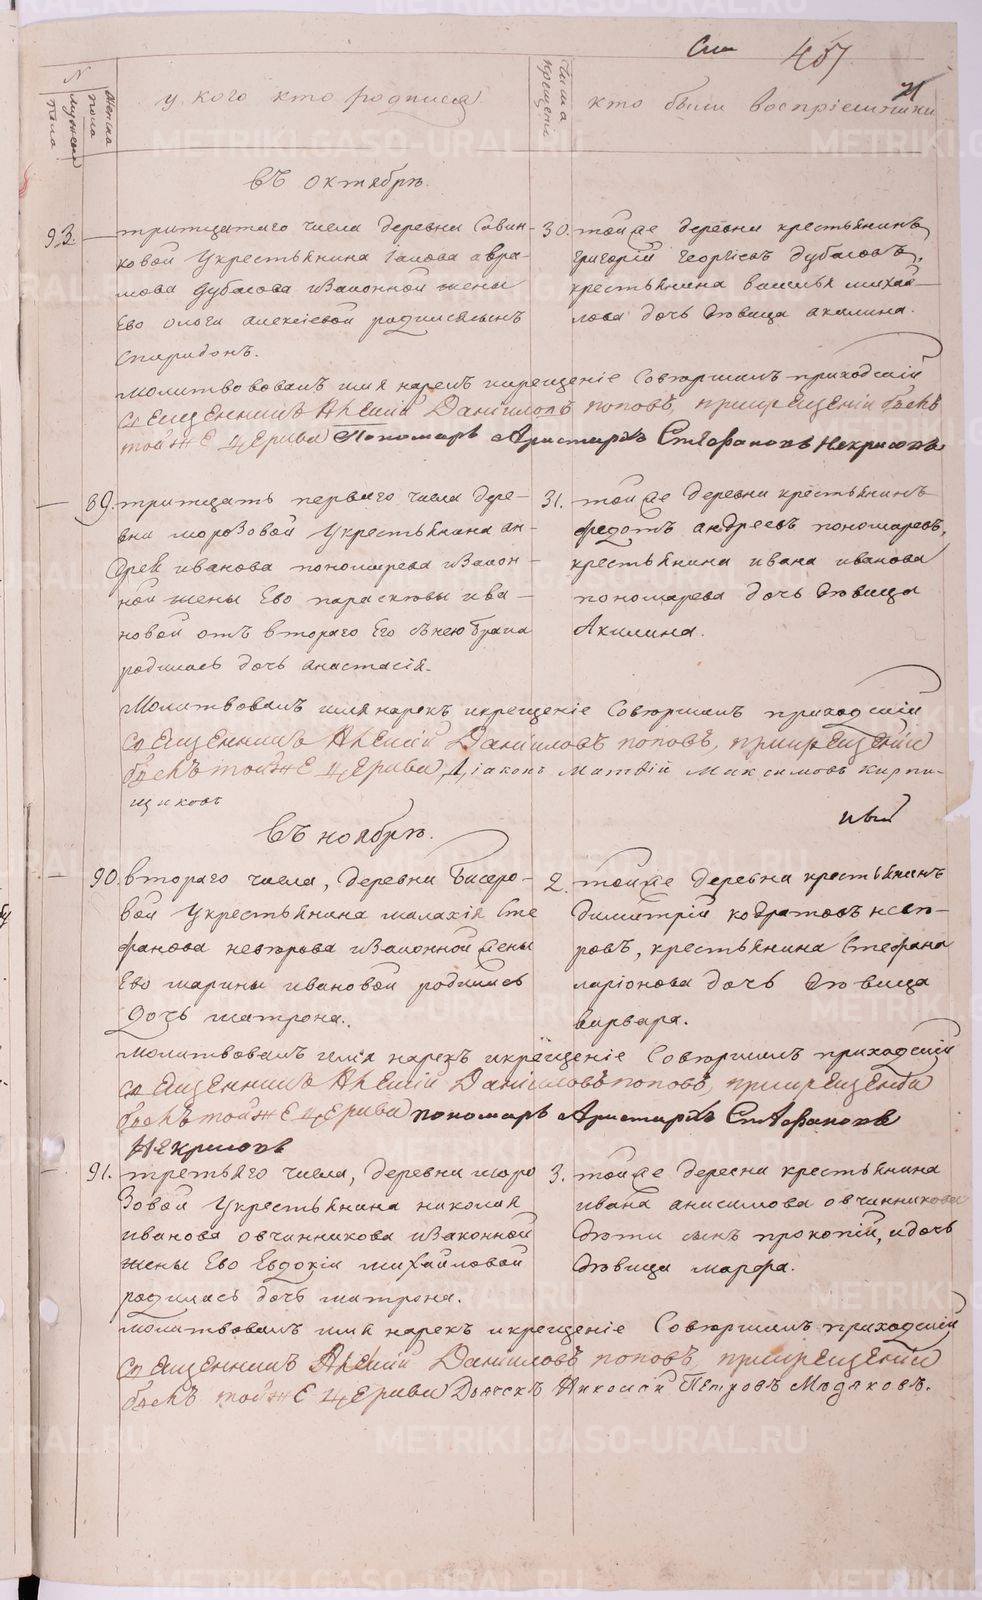 457
21
N
мужеска пола
женска пола
у кого кто родился
числа крещенія
кто были воспріемники
въ октябрѣ.
93. тритцатаго числа деревни Савин-
ковой укрестьянина іакова авра-
мова дубасова изаконной жены
Ево Ольги алексіевой родился сынъ
Спиридонъ.
30. тойже деревни крестьянинъ
григорій георгіевъ дубасовъ,
крестьянина василья михай-
лова дочь дѣвица акилина.
молитвовалъ имя нарекъ икрещеніе совершалъ приходскій
священникъ Алексій Даніиловъ поповъ, прикрещеніи былъ
тойже церкви Пономарь Аристархъ Стефановъ Некрасовъ
89. тритцать перваго числа дере-
вни морозовой укрестьянина ан-
дрея иванова пономарева изакон-
ной жены Ево параскевы ива-
новой отъ втораго Его снею брака
родилась дочь анастасія.
31. тойже деревни крестьянинъ
федотъ андреевъ пономаревъ,
крестьянина ивана иванова
пономарева дочь дѣвица
Акилина.
Молитвовалъ имя нарекъ икрещеніе совершалъ приходскій
священникъ Алексій Даніиловъ поповъ, прикрещеніи
былъ тойже церкви Діаконъ Матвій Максимовъ Кирпи-
щиковъ
въ ноябрѣ.
90. втораго числа, деревни бисеро-
вой укрестьянина малахія Сте
фанова невзорова изаконной жены
Ево марины ивановой родилась
Дочь матрона.
2. тойже деревни крестьянинъ
Димитрій кодратовъ невзо-
ровъ, крестьянина Стефана
ларіонова дочь дѣвица
варвара.
молитвовалъ имя нарекъ икрещеніе совершалъ приходскій
священникъ Алексій Даніиловъ поповъ, прикрещеніи
былъ тойже церкви пономарь Аристархъ Стефановъ
Некрасовъ
91. третьяго числа, деревни моро
зовой укрестьянина николая
иванова овчинникова изаконной
жены Ево Евдокіи михайловой
родилась дочь матрона.
3. тойже деревни крестьянина
ивана анисимова овчинникова
дѣти сынъ прокопій, идочь
дѣвица марфа.
молитвовалъ имя нарекъ икрещеніе совершалъ приходскій
священникъ Алексій Даніиловъ поповъ, прикрещеніи
былъ тойже церкви Дьячекъ Николай Петровъ Модяковъ.
METRIKI.GASO-URAL.RU